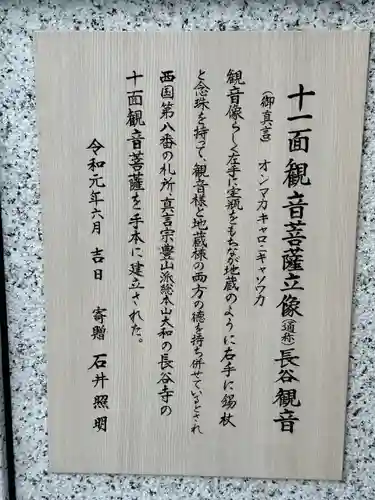 十一面観音菩薩立像(通称)長谷観音
(御真言) オンマカキャロニキャソワカ
観音像らしく左手に宝瓶をもちながら地蔵のように右手に錫杖
と念珠を持って、観音様と地蔵様の両方の徳を持ち併せているとされ
西国第八番の札所、真言宗豊山派総本山大和の長谷寺の
十一面観音菩薩をお手本に建立された。
令和元年六月 吉日 寄贈 石井照明